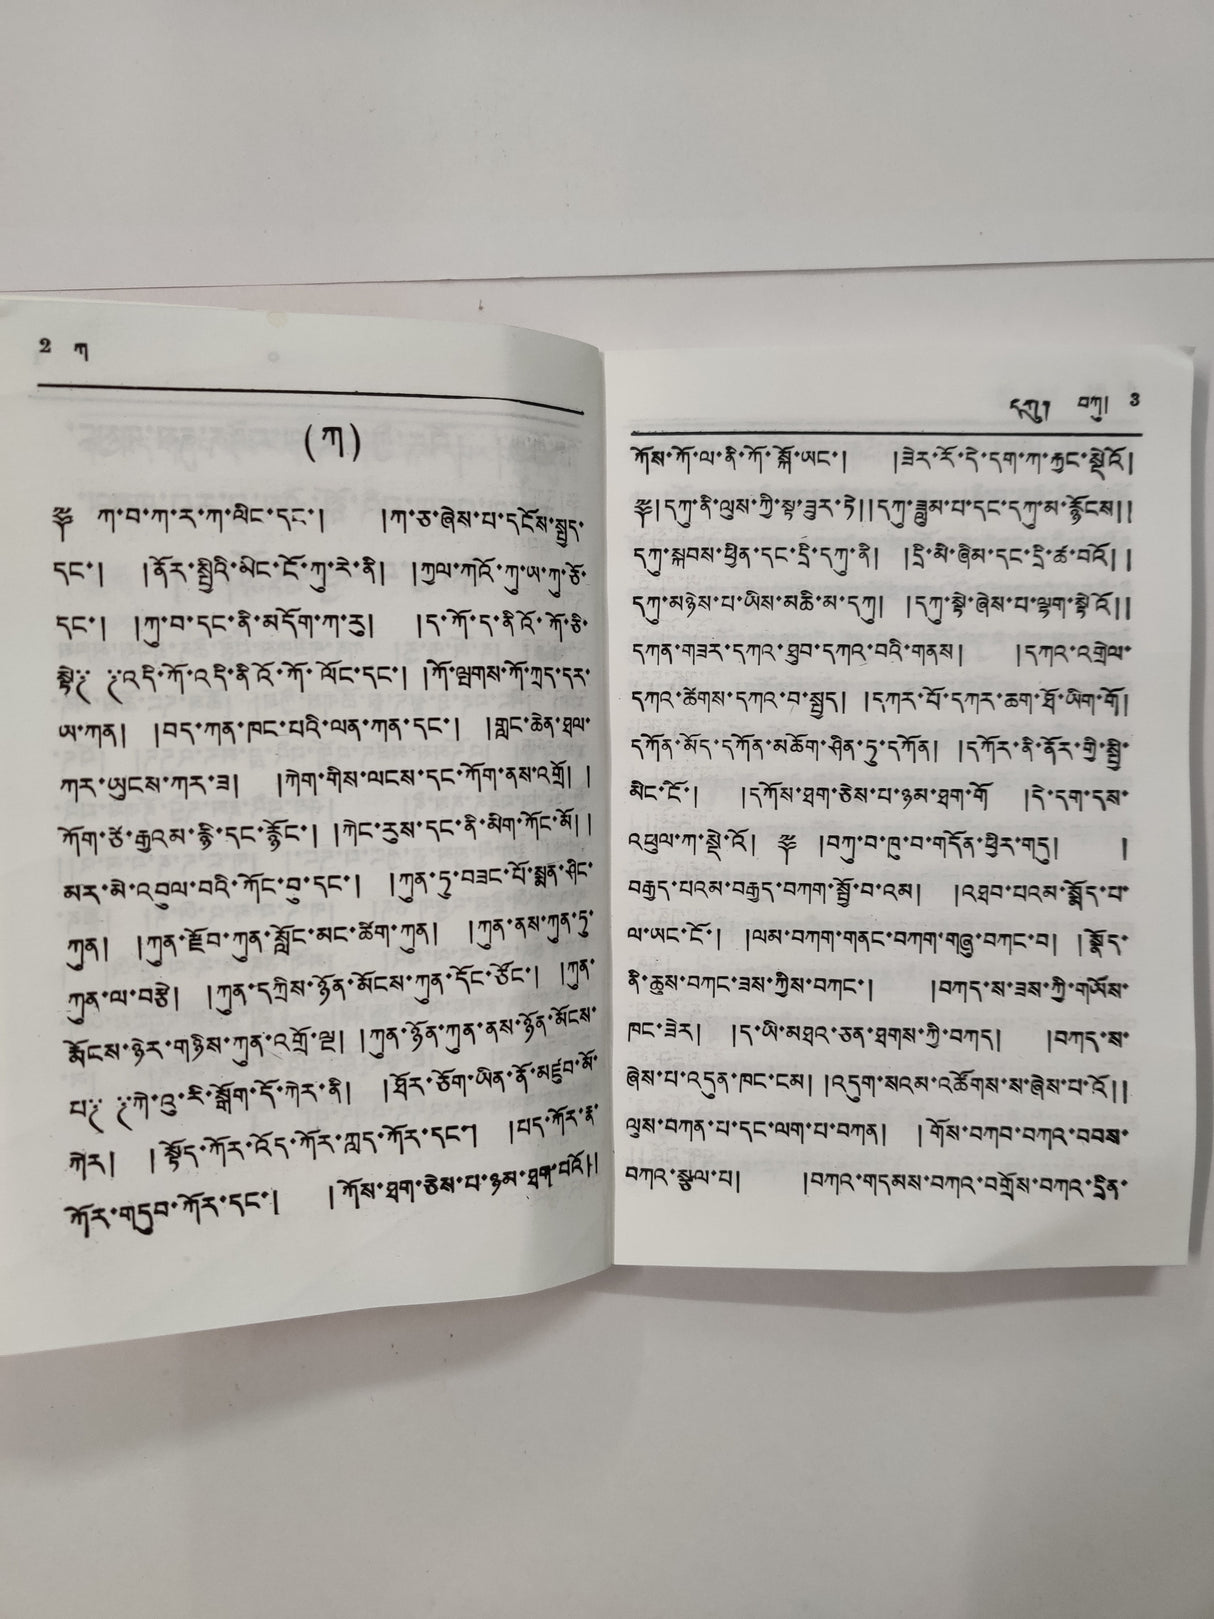 2 ཀ
(ཀ)
༈ ཀ་བ་ཀ་ར་ཀ་ལིང་དང་། །ཀ་ཅ་ཞེས་པ་དངོས་སྤྱད་
དང་། །ནོར་སྤྱིའི་མིང་ངོ་ཀུ་རེ་ནི། །ཀྱལ་ཀའོ་ཀུ་ཡ་ཀུ་ཅོ་
དང་། །ཀུ་བ་དང་ནི་མདོག་ཀ་རུ། །ད་ཀོ་ད་ནིའོ་ཀོ་ཅི་
སྟེ༔ ༔འདི་ཀོ་འདི་ནིའོ་ཀོ་ལོང་དང་། །ཀོ་ལྤགས་ཀོ་ཀྲད་དར་
ཡ་ཀན། །བད་ཀན་ཁང་པའི་ལན་ཀན་དང་། །གླང་ཆེན་ཐལ་
ཀར་ཡུངས་ཀར་ཟ། །ཀེག་གིས་ལངས་དང་ཀོག་ནས་འགྲོ། །
ཀོག་ཙེ་རྒྱའམ་རྙི་དང་རྙོང་། །ཀེང་རུས་དང་ནི་མིག་ཀོང་མོ། །
མར་མེ་འབུལ་བའི་ཀོང་བུ་དང་། །ཀུན་ཏུ་བཟང་པོ་སྨན་ཤིང་
ཀུན། །ཀུན་རྫོབ་ཀུན་སློང་མང་ཚིག་ཀུན། །ཀུན་ནས་ཀུན་ཏུ་
ཀུན་ལ་བརྩེ། །ཀུན་དཀྲིས་ཉོན་མོངས་ཀུན་དོང་ཙོང་། །ཀུན་
རྨོངས་ཉེར་གཉིས་ཀུན་འགྲོ་ལྔ། །ཀུན་ཉོན་ཀུན་ནས་ཉོན་མོངས་
པ༔ ༔ཀེ་འུ་རི་སྒོག་དོ་ཀེར་ནི། །ཐོར་ཅོག་ཡིན་ནོ་མཛུབ་མོ་
ཀེར། །སྟོད་ཀོར་འོད་ཀོར་ཀླད་ཀོར་དང་། །པད་ཀོར་རྣ་
ཀོར་གདུབ་ཀོར་དང་། །ཀོས་ཐག་ཅེས་པ་ཉམ་ཐག་པའོ། །
དཀུ། བཀུ། 3
ཀོས་ཀོ་ལ་ནི་ཀོ་སྐོ་ཡང་། །ཟེར་རོ་དེ་དག་ཀ་རྐྱང་སྡེའོ།
༈།དཀུ་ནི་ལུས་ཀྱི་སྟ་ཟུར་ཏེ། །དཀུ་ཟླུམ་པ་དང་དཀུ་མ་རྙོངས། །
དཀུ་སྐབས་ཕྱིན་དང་དྲི་དཀུ་ནི། །དྲི་མི་ཞིམ་དང་དྲི་ཚ་བའོ། །
དཀུ་མཉེས་པ་ཡིས་མཆི་མ་དཀུ། །དཀུ་སྟེ་ཞེས་པ་ལྟག་སྟེའོ། །
དཀན་གཟར་དཀའ་ཐུབ་དཀའ་བའི་གནས། །དཀའ་འགྲེལ་
དཀའ་ཚོགས་དཀའ་བ་སྤྱད། །དཀར་པོ་དཀར་ཆག་ཐོ་ཡིག་གོ།
དཀོན་མོད་དཀོན་མཆོག་ཤིན་ཏུ་དཀོན། །དཀོར་ནི་ནོར་གྱི་སྤྱི་
མིང་ངོ་། །དཀོས་ཐག་ཅེས་པ་ཉམ་ཐག་གོ །དེ་དག་དས་
འཕུལ་ཀ་སྡེའོ། ༈ །བཀུ་བ་ཁུ་བ་གདོན་ཕྱིར་གདུ། །
བརྒྱད་པའམ་བརྒྱད་བཀག་སྤྱོ་བ་འམ། །འཐབ་པའམ་སྨོད་པ་
ལ་ཡང་ངོ་། །ལམ་བཀག་གནང་བཀག་གཞུ་བཀང་བ། །སྣོད་
ནི་ཆུས་བཀང་ཟས་ཀྱིས་བཀང་། །བཀད་ས་ཟས་ཀྱི་གཡོས་
ཁང་ཟེར། །ད་ཡི་མཐའ་ཅན་ཐགས་ཀྱི་བཀད། །བཀད་ས་
ཞེས་པ་འདུན་ཁང་ངམ། །འདུག་སའམ་འཚོགས་ས་ཞེས་པ་འོ། །
ལུས་བཀན་པ་དང་ལག་པ་བཀན། །གོས་བཀབ་བཀའ་བབས་
བཀའ་སྩལ་པ། །བཀའ་གདམས་བཀའ་བགྲོས་བཀའ་དྲིན་